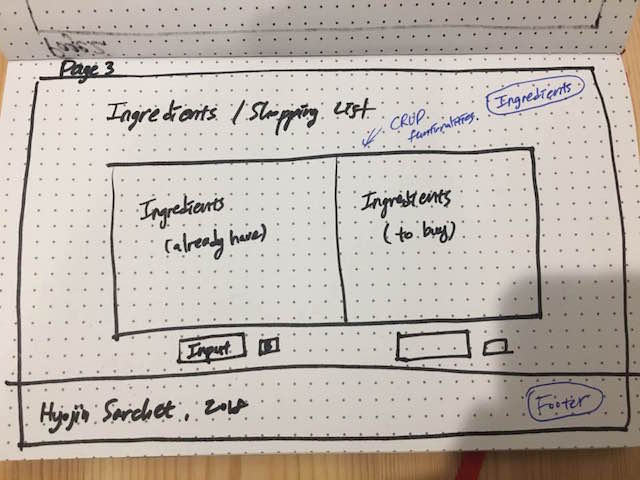 Page 3
Ingredients / Shopping List
Ingredients
CRUD
functionalities.
Ingredients
(already have)
Ingredients
(to buy)
Input
Hyojin Sarchet, 2018
Footer